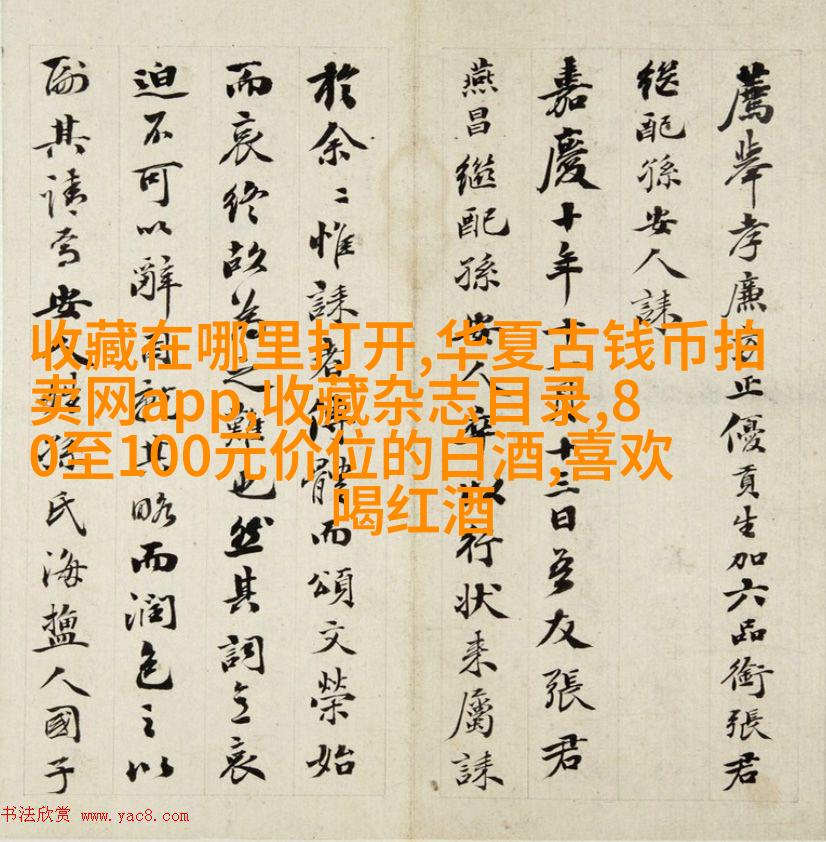 薦舉孝廉方正優貢生加六品銜張君
继配孫安人誄
嘉慶十年十 十三日吾友張君
燕昌繼配孫安人卒 行狀来屬誄
於余〻惟誄者 體而頌文榮始
而哀终故 之難也然其詞立哀
迫不可以辭 其略而潤色之以
副其請焉安人姓孫氏海鹽人國子
收藏在哪里打开,华夏古钱币拍
卖网app,收藏杂志目录,8
0至100元价位的白酒,喜欢
喝红酒
书法欣赏 www.yac8.com